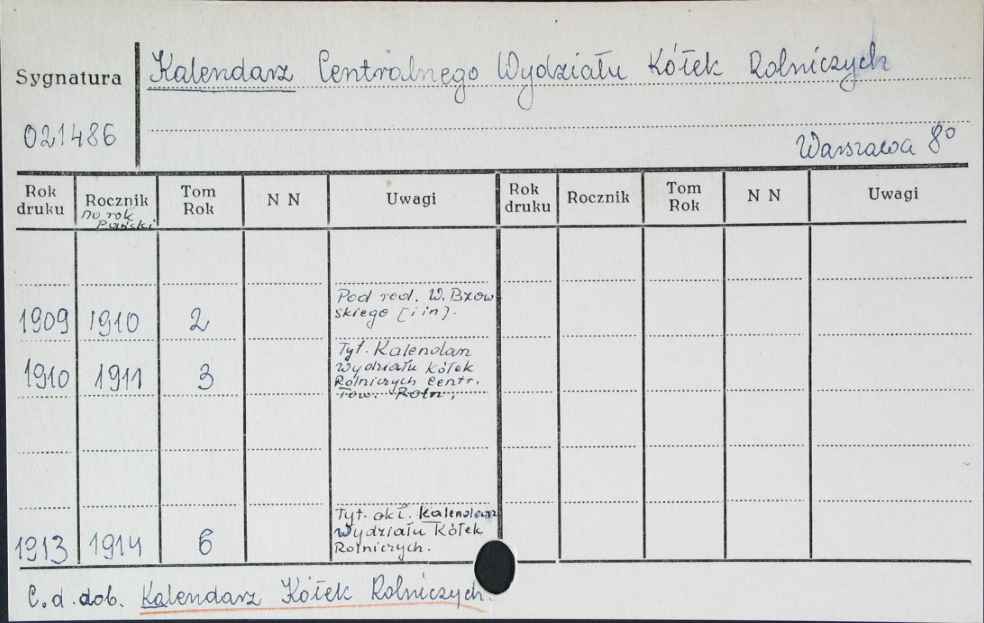 Sygnatura
Kalendarz Centralnego Wydziału Kółek Rolniczych
021486
Warszawa 8°
Rok druku Rocznik Tom Rok N N Uwagi Rok druku Rocznik Tom Rok N N Uwagi
na rok Pański
1909 1910 2 Pod red. W. Bzow
skiego [i in].
1910 1911 3 Tyt. Kalendarz
Wydziału Kółek
Rolniczych Centr.
Tow. Roln.
1913 1914 6 Tyt. okł. Kalendarz
Wydziału Kółek
Rolniczych.
C.d. dob. Kalendarz Kółek Rolniczych.